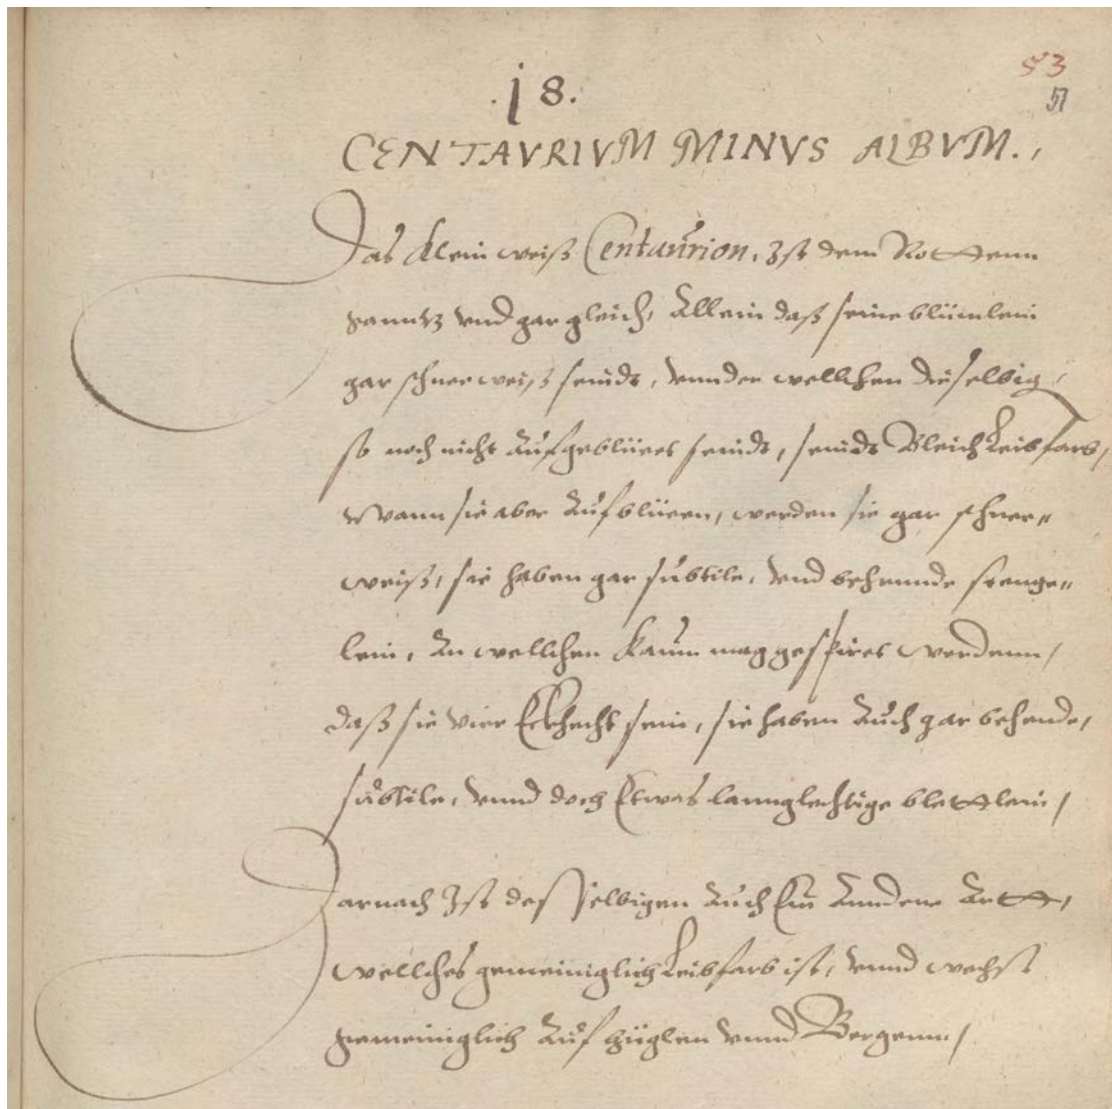 53
.j8.
51
CENTAVRIVM MINVS ALBVM.,
Das klein weiß Centaurion, Ist dem Rottenn
ganntz vnd gar gleich, Allein daß seine blümlein
gar schneeweiß seindt, vnnder wellchen dieselbig,
so noch nicht Aufgeblüet seindt, seindt Bleich Leibfarb,
Wann sie aber Aufblüeen, werden sie gar schnee„
weiß, sie haben gar subtile, vnd behennde stenge„
lein, An wellchen kaum mag gespüret werdenn,
daß sie vier Eckhecht sein, sie haben Auch gar behende,
subtile, vnnd doch Etwas lannglechtige blettlein,
Darnach Ist desselbigen Auch Ein Anndere Artt,
wellches gemeiniglich Leibfarb ist, vnnd wechst
gemeiniglich Auf hüglen vnnd Bergenn,